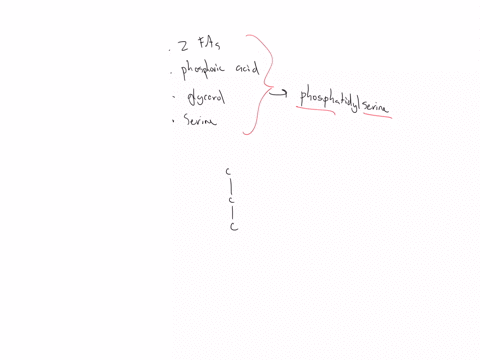 · 2 FAs
· phosphoric acid
· glycerol
· Serine
→ phosphatidylserine
C
|
C
|
C